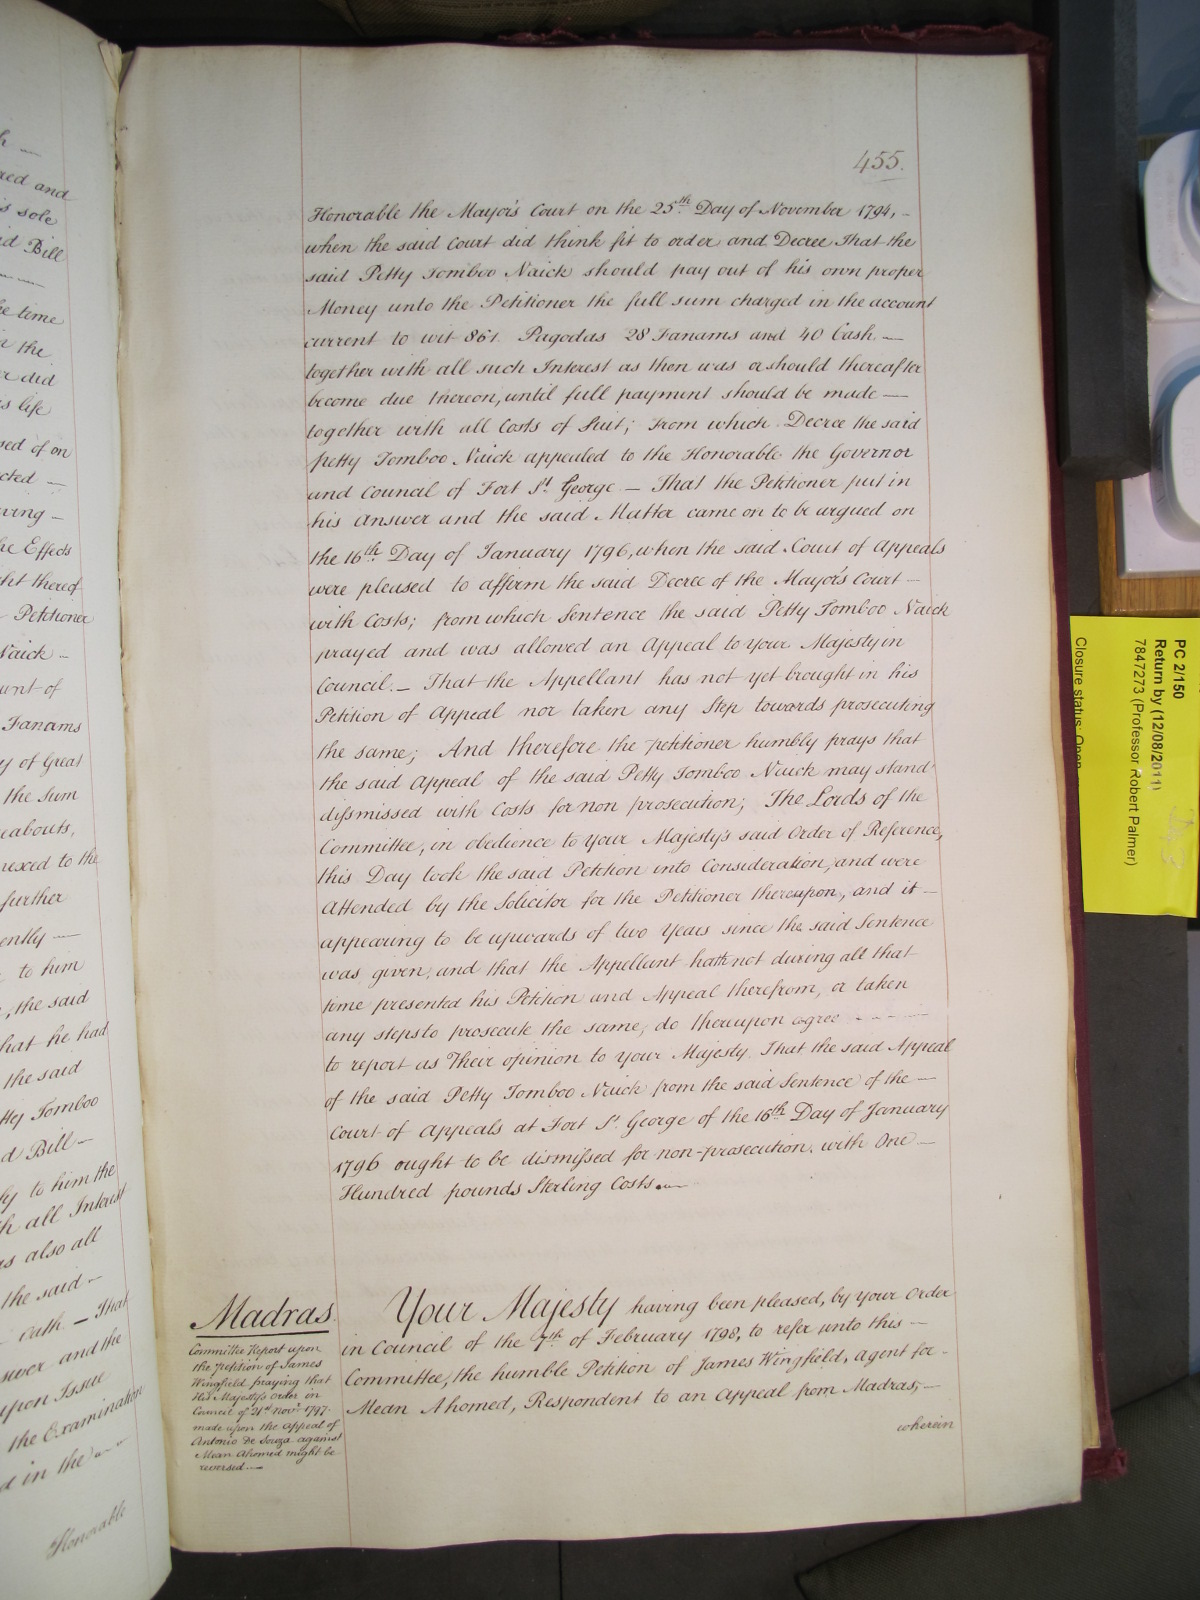 h
red and
's sole
id Bill
e time
n the
er did
s life
sed of on
cted
ving
he Effects
ht thereof
Petitioner
Naick
unt of
Fanams
y of Great
the Sum
eabouts,
nexed to the
further
ently
to him
, the said
hat he had
the said
tty Tomboo
d Bill
ly to him the
h all Interest
as also all
the said
oath. — That
swer and the
upon Issue
the Examination
d in the
Honorable
455.
Honorable the Mayor's Court on the 25th Day of November 1794,
when the said Court did think fit to order and Decree That the
said Petty Tomboo Naick should pay out of his own proper
Money unto the Petitioner the full sum charged in the account
current to wit 861. Pagodas 28 Fanams and 40 Cash —
together with all such Interest as then was or should thereafter
become due thereon, until full payment should be made —
together with all Costs of Suit; From which Decree the said
Petty Tomboo Naick appealed to the Honorable the Governor
and Council of Fort St. George — That the Petitioner put in
his Answer and the said Matter came on to be argued on
the 16th Day of January 1796, when the said Court of Appeals
were pleased to affirm the said Decree of the Mayor's Court —
with Costs; from which Sentence the said Petty Tomboo Naick
prayed and was allowed an Appeal to Your Majesty in
Council. — That the Appellant has not yet brought in his
Petition of Appeal nor taken any Step towards prosecuting
the same; And therefore the petitioner humbly prays that
the said Appeal of the said Petty Tomboo Naick may stand
dismissed with Costs for non prosecution; The Lords of the
Committee, in obedience to Your Majesty's said Order of Reference,
this Day took the said Petition into Consideration, and were
Attended by the Solicitor for the Petitioner thereupon, and it —
appearing to be upwards of two Years since the said Sentence
was given, and that the Appellant hath not during all that
time presented his Petition and Appeal therefrom, or taken
any steps to prosecute the same, do thereupon agree - - - -
to report as Their opinion to Your Majesty. That the said Appeal
of the said Petty Tomboo Naick from the said Sentence of the —
Court of Appeals at Fort St. George of the 16th Day of January
1796 ought to be dismissed for non-prosecution, with One —
Hundred pounds Sterling Costs. —
Madras.
Committee Report upon
the petition of James
Wingfield praying that
His Majesty's Order in
Council of 21st Novr. 1797.
made upon the Appeal of
Antonio De Souza against
Mean Ahomed might be
reversed —
Your Majesty having been pleased, by Your Order
in Council of the 7th of February 1798, to refer unto this —
Committee, the humble Petition of James Wingfield, agent for
Mean Ahomed, Respondent to an Appeal from Madras; —
wherein
PC 2/150
Return by (12/08/2011)
7847273 (Professor Robert Palmer)
Closure status: Open